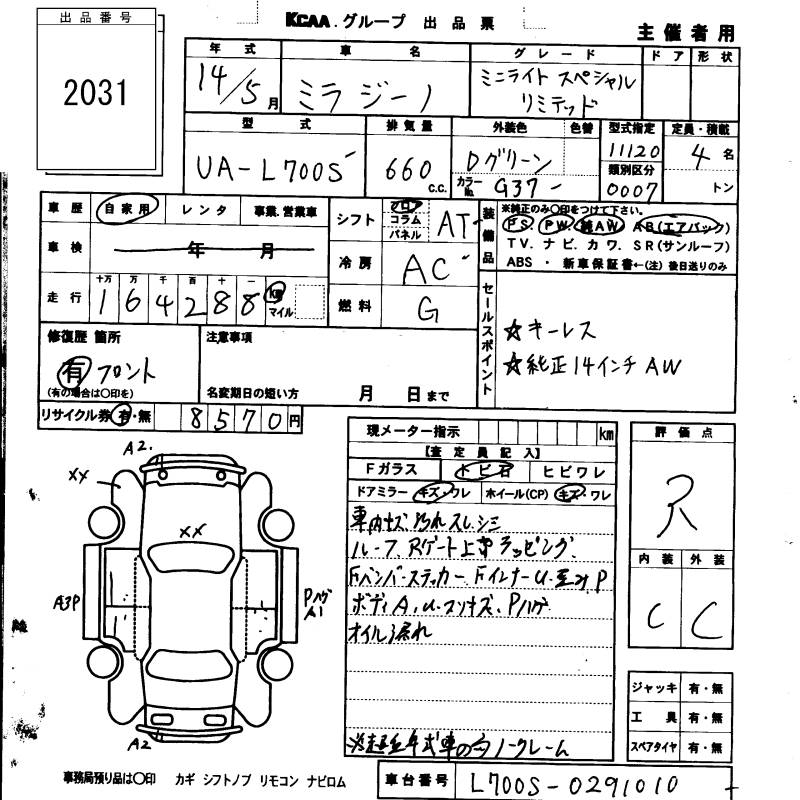 出品番号
2031
KCAA.グループ 出品票
主催者用
年式 車名 グレード ドア 形状
14/5月 ミラジーノ ミニライト スペシャル
リミテッド
型式 排気量 外装色 色替 型式指定 定員・積載
UA-L700S 660 c.c. Dグリーン カラーNo. G37 11120 4名
類別区分
0007 トン
車歴 自家用 レンタ 事業.営業車
車検 年 月
走行 十万 万 千 百 十 一
164288 km マイル
シフト フロア コラム パネル AT
冷房 AC
燃料 G
装備品 ※純正のみ〇印をつけて下さい。
PS PW 純AW AB(エアバック)
TV. ナビ. カワ. SR(サンルーフ)
ABS ・ 新車保証書←(注) 後日送りのみ
セールスポイント
☆キーレス
☆純正14インチAW
修復歴 箇所
有 フロント
(有の場合は〇印を)
注意事項
名変期日の短い方 月 日まで
リサイクル券 有・無 8570円
現メーター指示 km
【査定員記入】
Fガラス トビ石 ヒビワレ
ドアミラー キズ・ワレ ホイール(CP) キズ・ワレ
車内キズ.汚れ スレ.シミ
ルーフ.Rゲート上部ラッピング.
Fバンパーステッカー FインナーU.
ボディA.U.スリキズ.Pハゲ
オイル漏れ
ノークレーム
評価点
R
内装 外装
C C
ジャッキ 有・無
工具 有・無
スペアタイヤ 有・無
A2.
XX
XX
A3P
Pハゲ
A1
A2
事務局預り品は〇印 カギ シフトノブ リモコン ナビロム
車台番号 L700S-0291010